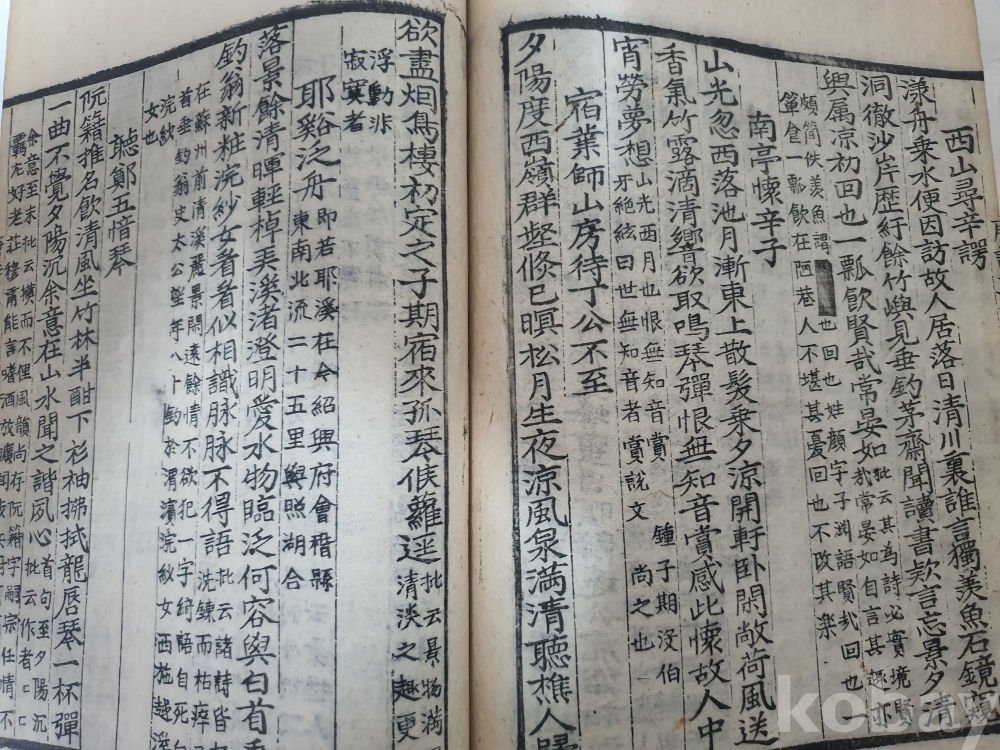 西山尋辛諤
漾舟乗水便因訪故人居落日清川裏誰言獨羨魚石鏡窺
洞徹沙岸歷紆餘竹嶼見垂釣茅齋聞讀書欵言忘景夕清
興属凉初回也一瓢飲賢哉常晏如
批云其為詩必實境賢
哉常晏如自言其趣亦
頗簡佚羨魚謂也回也姓顔字子淵語賢哉回也一
簞食一瓢飲在陋巷人不堪其憂回也不改其樂
南亭懷辛子
山光忽西落池月漸東上散髮乗夕凉開軒卧閑敞荷風送
香氣竹露滴清響欲取鳴琴彈恨無知音賞感此懷故人中
宵勞夢想
山光西月也恨無知音賞鍾子期没伯
牙絕絃曰世無知音者賞說文尚之也
宿業師山房待丁公不至
夕陽度西嶺群壑倐已暝松月生夜凉風泉満清聽樵人歸
欲盡烟鳥棲初定之子期宿來孤琴候蘿逕
批云景物満
清淡之趣更
浮動非
寂寞者
耶谿泛舟
即若耶溪在今紹興府會稽縣
東南北流二十五里與照湖合
落景餘清暉輕棹弄溪渚澄明愛水物臨泛何容與白首垂
釣翁新粧浣紗女看看似相識脉脉不得語
批云諸詩皆
洗鍊而枯瘁
在蘇州前清溪麗景閑遠餘情不欲犯一字綺語自死白
首垂釣翁史太公望年八十釣於渭濱浣紗女西施越溪
浣紗
女也
聴鄭五愔琴
阮籍推名飲清風坐竹林半酣下衫袖拂拭龍唇琴一杯彈
一曲不覺夕陽沉余意在山水聞之諧夙心
首句至夕陽沉
批云作者
余意至末批云横而不俚風韻尚存阮籍字嗣宗任情不
覊尤好老莊能言嗜酒放曠
kobay